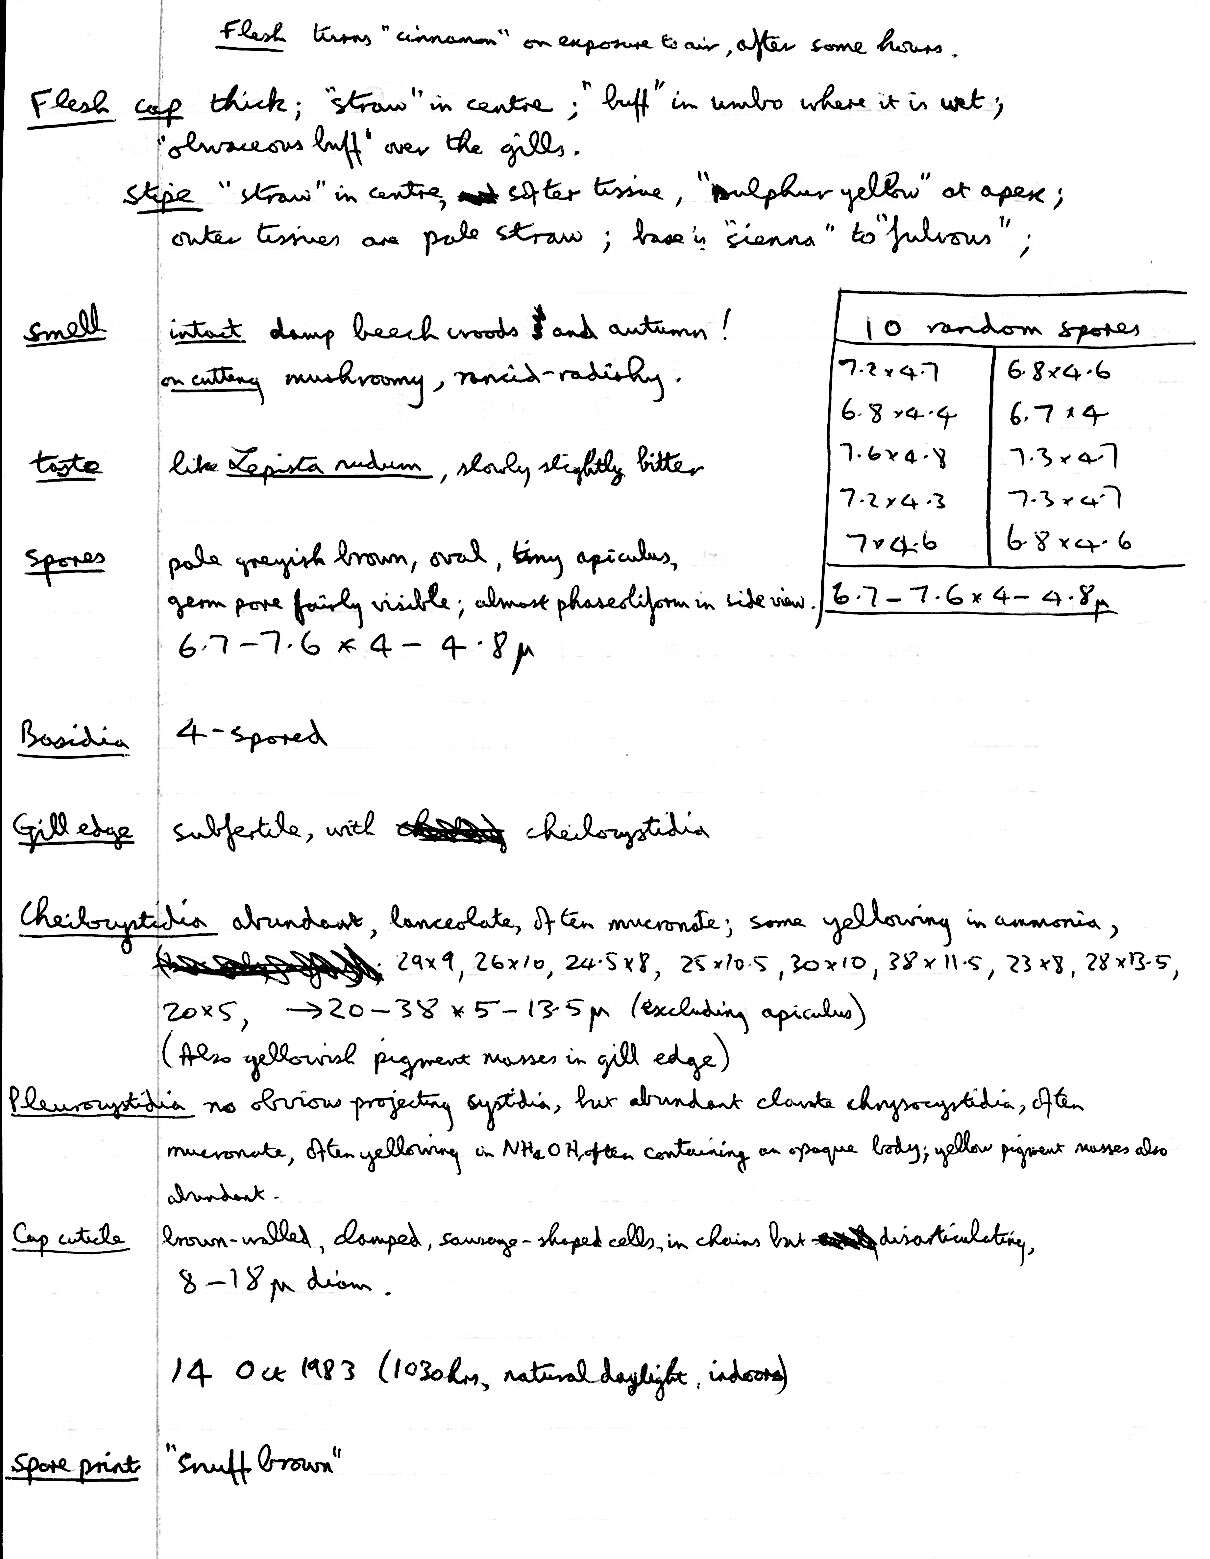 Flesh turns "cinnamon" on exposure to air, after some hours.
Flesh cap thick; "straw" in centre; "buff" in umbo where it is wet;
"olivaceous buff" over the gills.
Stipe "straw" in centre, softer tissue, "sulphur yellow" at apex;
outer tissues are pale straw; base is "sienna" to "fulvous";
Smell intact damp beech woods and autumn!
on cutting mushroomy, rancid-radishy.
taste like Lepista nudum, slowly slightly bitter
10 random spores
7.2 x 4.7 6.8 x 4.6
6.8 x 4.4 6.7 x 4
7.6 x 4.8 7.3 x 4.7
7.2 x 4.3 7.3 x 4.7
7 x 4.6 6.8 x 4.6
6.7 – 7.6 x 4 – 4.8 µ
Spores pale greyish brown, oval, tiny apiculus,
germ pore fairly visible; almost phaseoliform in side view.
6.7 – 7.6 x 4 – 4.8 µ
Basidia 4-spored
Gill edge subfertile, with cheilocystidia
Cheilocystidia abundant, lanceolate, often mucronate; some yellowing in ammonia,
29x9, 26x10, 24.5x8, 25x10.5, 30x10, 38x11.5, 23x8, 28x13.5,
20x5, → 20 – 38 x 5 – 13.5 µ (excluding apiculus)
(Also yellowish pigment masses in gill edge)
Pleurocystidia no obvious projecting cystidia, but abundant clavate chrysocystidia, often
mucronate, often yellowing in NH4OH, often containing an opaque body; yellow pigment masses also
abundant.
Cap cuticle brown-walled, clamped, sausage-shaped cells, in chains but disarticulating,
8 – 18 µ diam.
14 Oct 1983 (1030 hrs, natural daylight, indoors)
Spore print "Snuff brown"